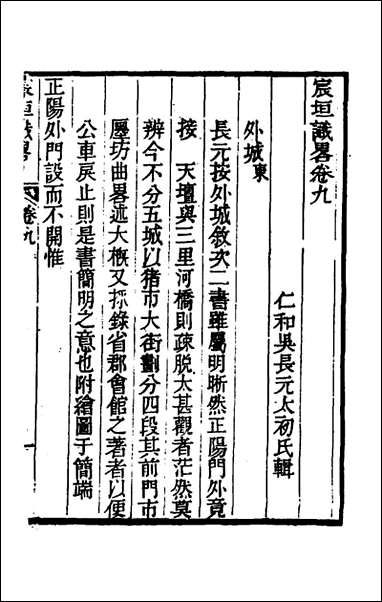 宸垣識畧卷九
仁和吳長元太初氏輯
外城東
長元按外城敘次二書雖屬明晰然正陽門外竟
接 天壇與三里河橋則疎脫太甚觀者茫然莫
辨今不分五城以猪市大街劃分四段其前門市
廛坊曲畧述大概又採錄省郡會館之著者以便
公車戾止則是書簡明之意也附繪圖于簡端
正陽外門設而不開惟
宸垣識畧
卷九
一